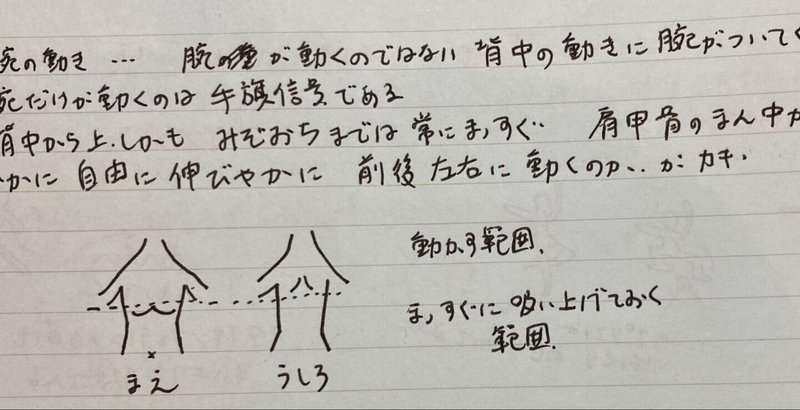 腕の動き … 腕が動くのではない 背中の動きに腕がついてく
腕だけが動くのは 手旗信号である
背中から上.しかも みぞおちまでは 常にまっすぐ 肩甲骨のまん中が
かに 自由に 伸びやかに 前後左右に 動くのか、、が カギ.
動かす範囲.
まっすぐに 吸い上げておく
範囲.
まえ
うしろ